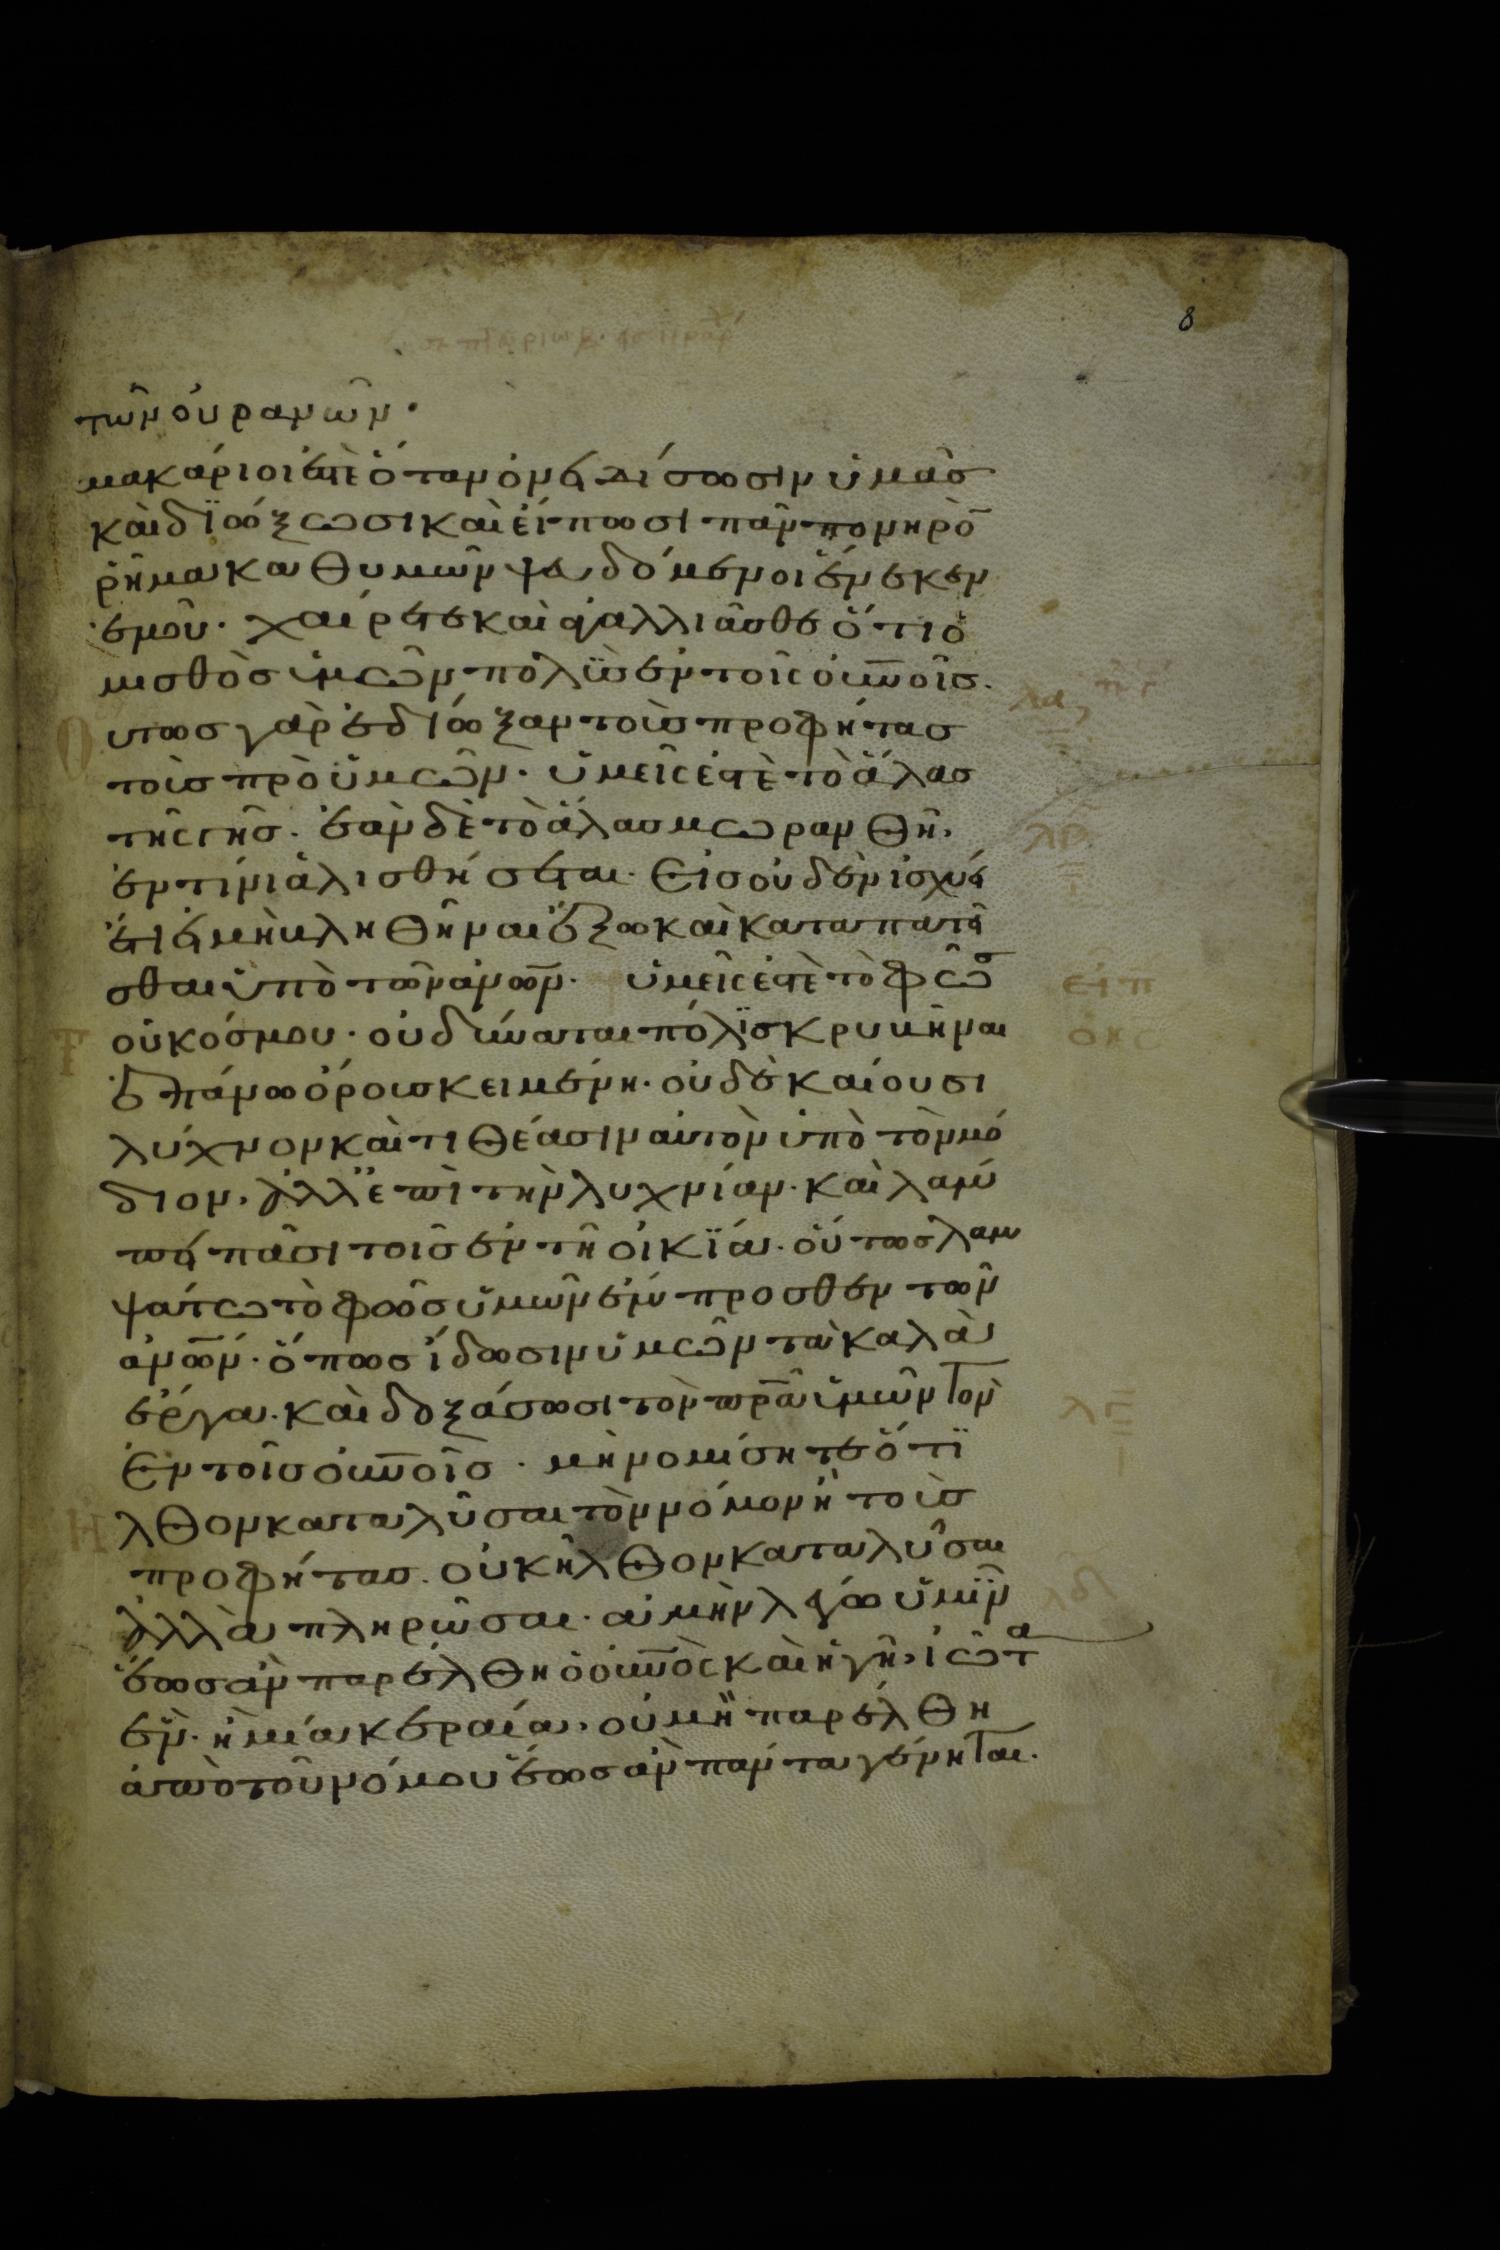 8
τῶν οὐρανῶν·
μακάριοί ἐστὲ ὅταν ὀνειδίσωσιν ὑμᾶσ
καὶ δϊώξωσι καὶ εἴπωσι πᾶν πονηρὸ̄
ῥῆμα καθ υμῶν ψευδόμενοι ἕνεκεν
ἐμοῦ· χαίρετε καὶ ἀγαλλιᾶσθε ὅτι ὁ
μισθὸσ ὑμῶν πολὺσ ἐν τοῖς οὐνοῖσ.
Ουτωσ γὰρ ἐδίωξαν τοὺσ προφήτασ
τοὺσ πρὸ ὑμῶν· ὑμεῖς ἐστὲ τὸ ἅλασ
τῆς γῆσ· ἐὰν δὲ τὸ ἅλασ μωρανθῆ,
ἐν τίνι ἁλισθήσεται· Εἰσ οὐδὲν ἰσχύει
ἔτι εἰ μὴ βληθῆναι ἔξω καὶ καταπατεῖ
σθαι ὑπὸ τῶν ἀνων· ὑμεῖς ἐστὲ τὸ φῶσ
Τοῦ κόσμου· οὐ δύναται πόλϊσ κρυβῆναι
ἐπάνω ὄρουσ κειμένη· οὐδὲ καίουσι
λύχνον καὶ τιθέασιν αὐτὸν ὑπὸ τὸν μό
διον, ἀλλ' ἐπὶ τὴν λυχνίαν· καὶ λάμ
πει πᾶσι τοῖσ ἐν τῆ οἰκΐα· οὕτωσ λαμ
ψάτω τὸ φῶσ ὑμῶν ἔμπροσθεν τῶν
ἀνων· ὅπωσ ἴδωσιν ὑμῶν τὰ καλὰ
ἔργα· καὶ δοξάσωσι τὸν πρα ὑμῶν τὸν
Ἐν τοῖσ οὐνοῖσ · μὴ νομίσητε ὅτϊ
Ηλθον καταλῦσαι τὸν νόμον ἢ τοὺσ
προφήτασ· οὐκ ἦλθον καταλῦσαι
ἀλλὰ πληρῶσαι· ἀμὴν λέγω ὑμῖν
ἕωσ ἂν παρέλθη ὁ οὐνὸς καὶ ἡ γῆ, ἰῶτα
ἓν· ἢ μία κεραία, οὐ μὴ παρέλθη
ἀπὸ τοῦ νόμου ἕωσ ἂν πάντα γένηται·